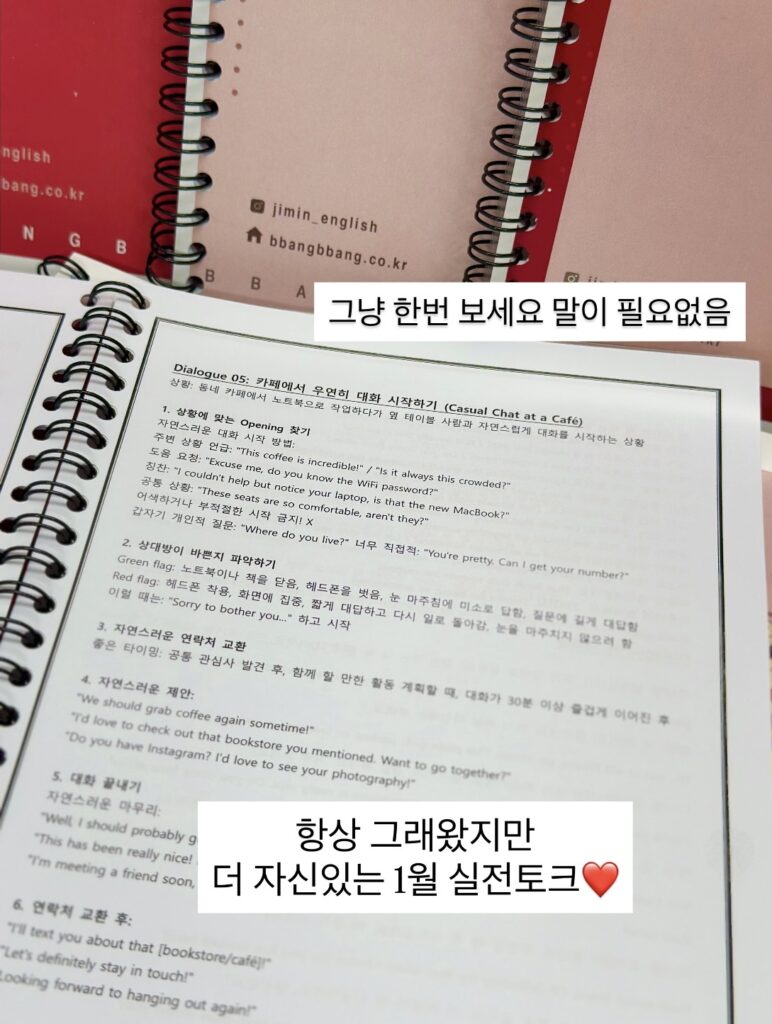 nglish
bang.co.kr
N G B
jimin_english
bbangbbang.co.kr
B B A
그냥 한번 보세요 말이 필요없음
Dialogue 05: 카페에서 우연히 대화 시작하기 (Casual Chat at a Café)
상황: 동네 카페에서 노트북으로 작업하다가 옆 테이블 사람과 자연스럽게 대화를 시작하는 상황
1. 상황에 맞는 Opening 찾기
자연스러운 대화 시작 방법:
주변 상황 언급: "This coffee is incredible!" / "Is it always this crowded?"
도움 요청: "Excuse me, do you know the WiFi password?"
칭찬: "I couldn't help but notice your laptop, is that the new MacBook?"
공통 상황: "These seats are so comfortable, aren't they?"
어색하거나 부적절한 시작 금지! X
갑자기 개인적 질문: "Where do you live?" 너무 직접적: "You're pretty. Can I get your number?"
2. 상대방이 바쁜지 파악하기
Green flag: 노트북이나 책을 닫음, 헤드폰을 벗음, 눈 마주침에 미소로 답함, 질문에 길게 대답함
Red flag: 헤드폰 착용, 화면에 집중, 짧게 대답하고 다시 일로 돌아감, 눈을 마주치지 않으려 함
이럴 때는: "Sorry to bother you..." 하고 시작
3. 자연스러운 연락처 교환
좋은 타이밍: 공통 관심사 발견 후, 함께 할 만한 활동 계획할 때, 대화가 30분 이상 즐겁게 이어진 후
4. 자연스러운 제안:
"We should grab coffee again sometime!"
"I'd love to check out that bookstore you mentioned. Want to go together?"
"Do you have Instagram? I'd love to see your photography!"
5. 대화 끝내기
자연스러운 마무리:
"Well, I should probably g
"This has been really nice!
"I'm meeting a friend soon,
항상 그래왔지만
더 자신있는 1월 실전토크❤️
6. 연락처 교환 후:
"I'll text you about that [bookstore/café]!"
"Let's definitely stay in touch!"
Looking forward to hanging out again!"